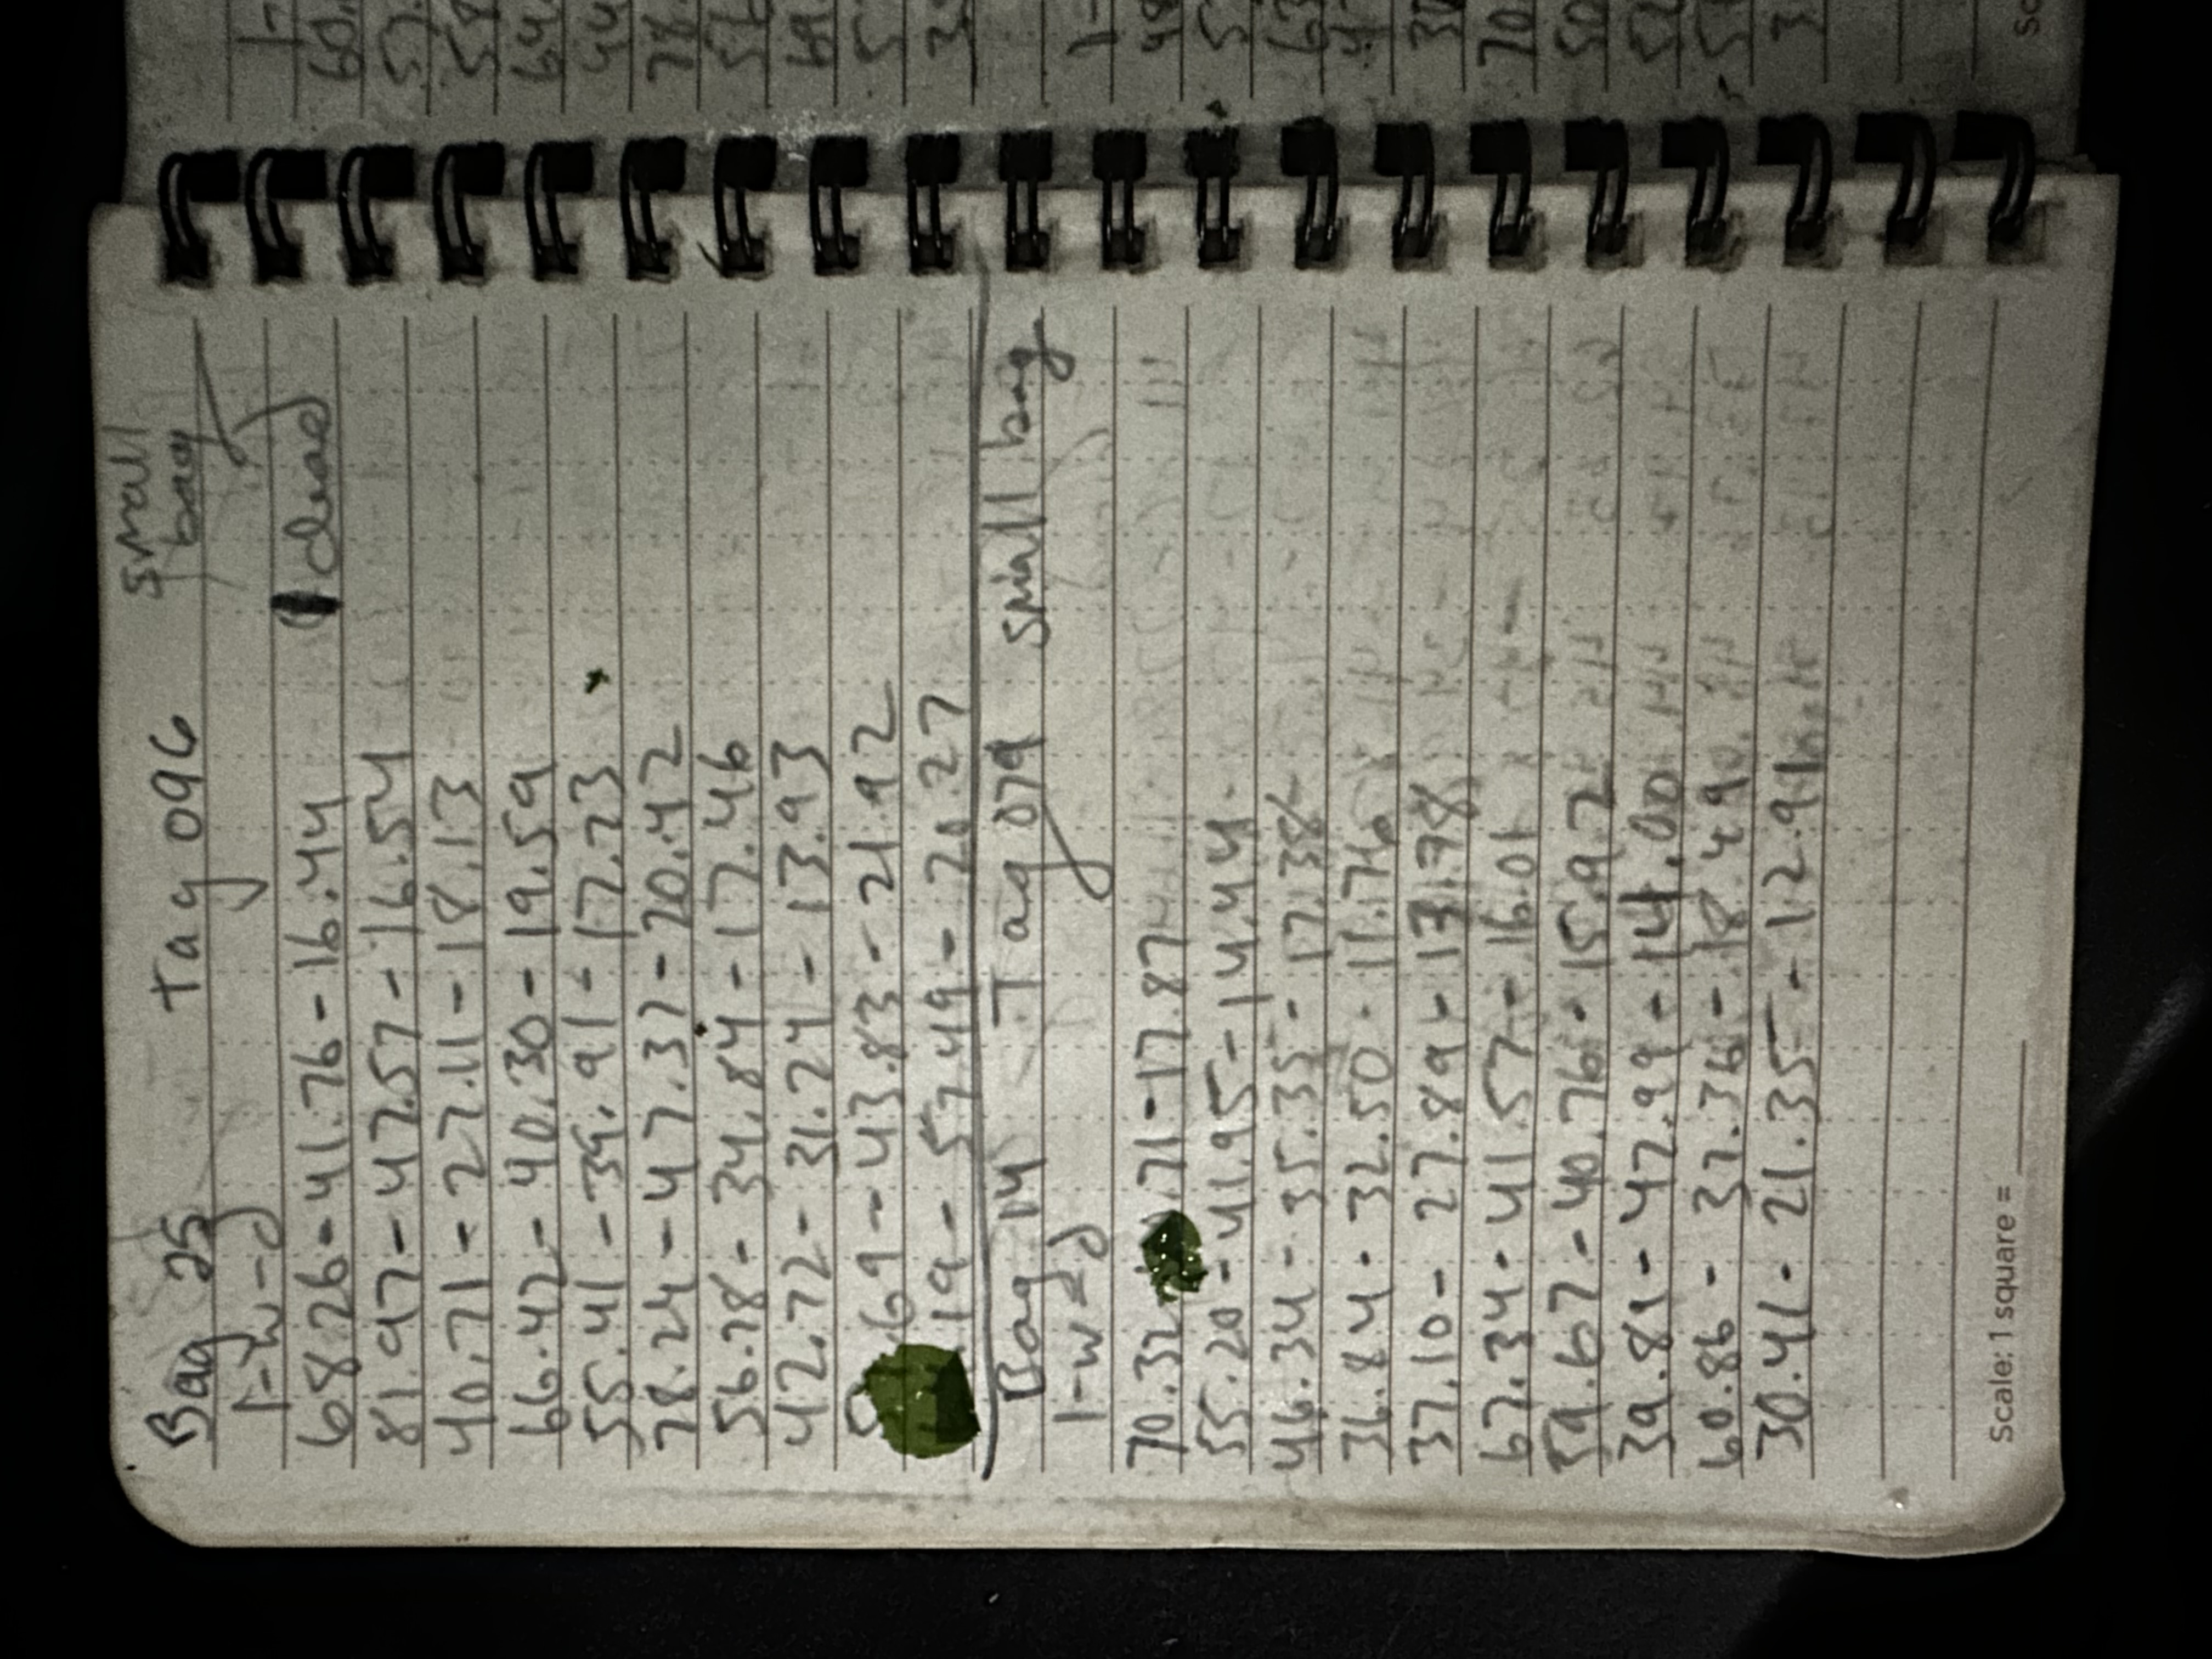 Bag 25 Tag 096 small bag
l-w-d
68.26-41.76-16.44 1 dead
81.97-47.57-16.54
40.71-27.11-18.13
66.42-40.30-19.59
55.41-39.91-17.73
78.24-47.37-20.42
56.78-34.84-17.46
42.72-31.24-13.93
.69-43.83-21.92
.19-57.49-20.27
Bag 14 Tag 079 small bag
l-w-d
70.32 .71-17.87
55.20-41.95-14.44
46.34-35.35-17.38
36.84-32.50-11.76
37.10-27.89-13.78
67.34-41.57-16.01
59.67-40.76-15.92
39.89-42.99-14.00
60.86-37.36-18.49
30.41-21.35-12.91
Scale: 1 square =